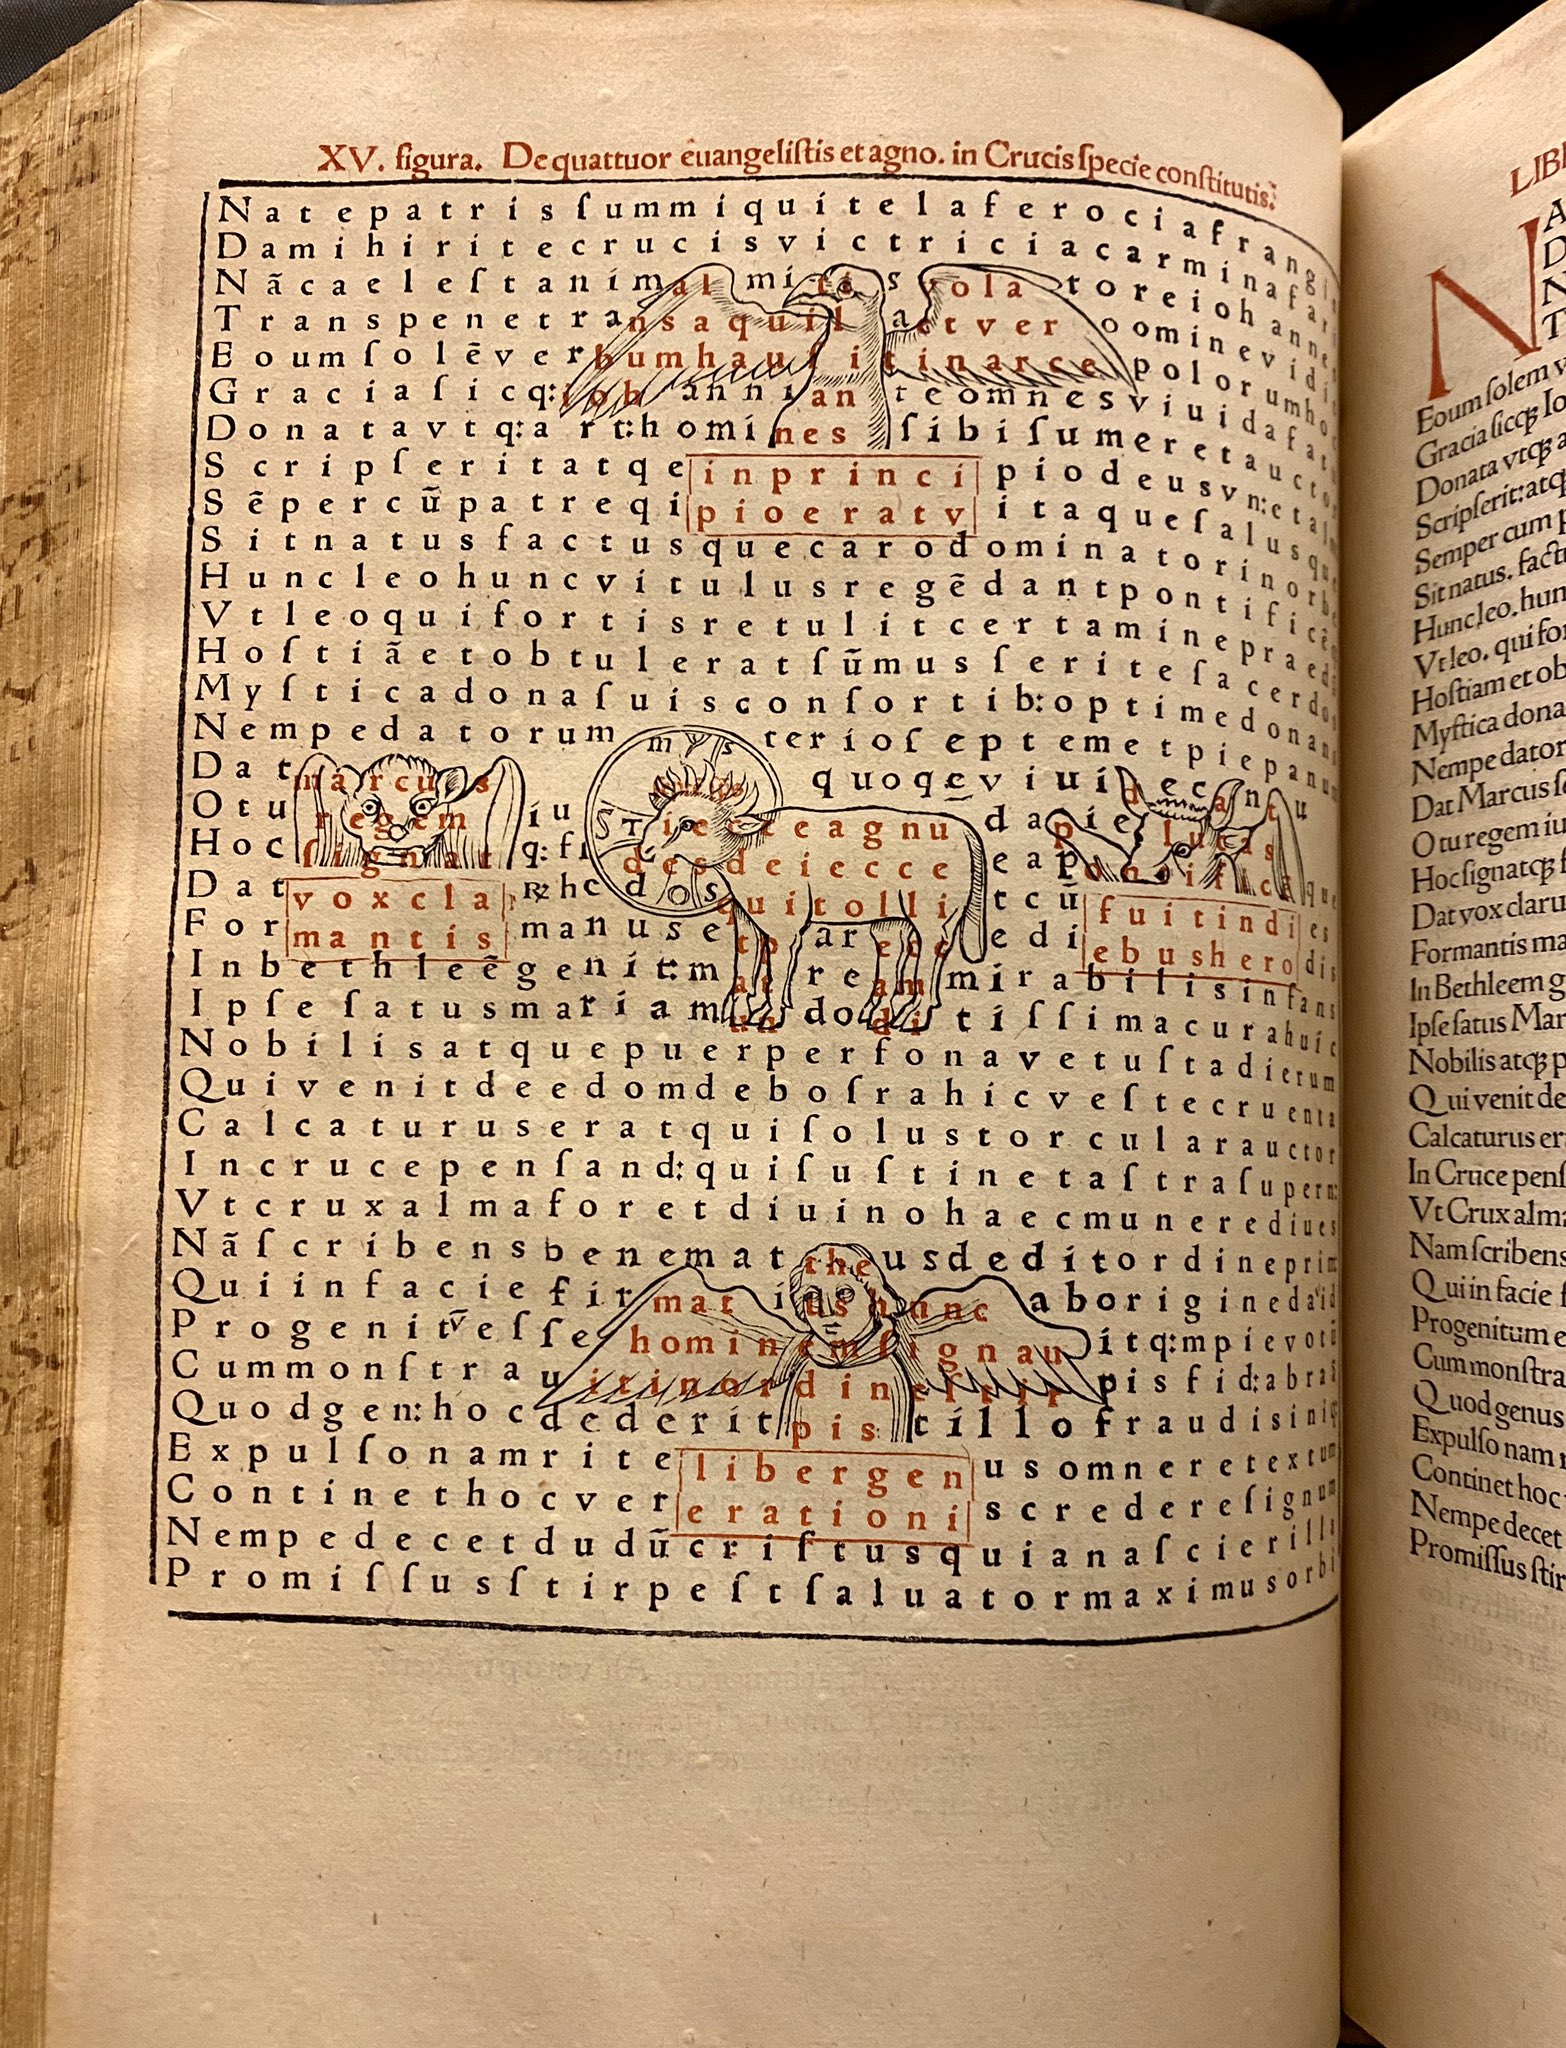 XV. figura. De quattuor euangeliſtis et agno. in Crucis ſpecie conſtitutis.
Natepatrisſummiquitelaferociafrangis
Damihiritecrucisvictriciacarminafari
Nãcaeleſtanimalmitisvolatoreiohannes
Transpenetransaquilaetveroominevidit
Eoumſolẽverbumhauſitinarcepolorumhoc
Graciaſicq:iohannianteomnesviuidafata
Donatavtq:art:hominesſibiſumeretauctor
Scripſeritatqeinprincipiodeusvn:etalm
Sẽpercũpatreqipioeratvitaqueſalusque
Sitnatusfactusquecarodominatorinorbe
Huncleohuncvitulusregẽdantpontificẽq
Vtleoquifortisretulitcertaminepraedã
Hoſtiãetobtuleratſũmusſeriteſacerdos
Myſticadonaſuisconſortib:optimedonans
Nempedatorummysterioſeptemetpiepanu
Datmarcus quoqeviuidecantu
Oturegemiu dapielucas
Hocſignatq:fi stiecceagnu
desdeieccee
Datvoxcla dos quitolli tcũ fuitindi
Formantismanuse edi ebushero
Inbethleẽgenit:m mirabilisinfans
Ipſeſatusmariam tiſſimacurahuic
Nobilisatquepuerperſonavetuſtadierum
Quivenitdeedomdeboſrahicveſtecruenta
Calcaturuseratquiſolustorcularauctor
Incrucepenſand:quiſuſtinetaſtraſupern:
Vtcruxalmaforetdiuinohaecmunerediues
Nãſcribensbenemattheusdeditordineprim
Quiinfaciefirmatiushuncaboriginedauid
Progenitv̄eſſehominemſignauitq:mpievotũ
Cummonſtrauitinordineſtirpisfid:abras
Quodgen:hocdederitpistillofraudisiniq
Expulſonamritelibergenusomneretextum
Continethocvererationiscredereſignum
Nempedecetdudũcriſtusquianaſcierilla
Promiſſusſtirpeſtſaluatormaximusorbi
LIBE
Eoum ſolem v
Gracia ſicqꝫ Io
Donata vtqꝫ a
Scripſerit: atqꝫ
Semper cum p
Sit natus. factu
Hunc leo. hun
Vt leo. qui for
Hoſtiam et ob
Myſtica dona
Nempe dator
Dat Marcus ſe
O tu regem iu
Hoc ſignatqꝫ f
Dat vox claru
Formantis ma
In Bethleem g
Ipſe ſatus Mar
Nobilis atqꝫ p
Qui venit de
Calcaturus er
In Cruce penſ
Vt Crux alma
Nam ſcribens
Qui in facie f
Progenitum e
Cum monſtra
Quod genus
Expulſo nam r
Continet hoc
Nempe decet
Promiſſus ſtir